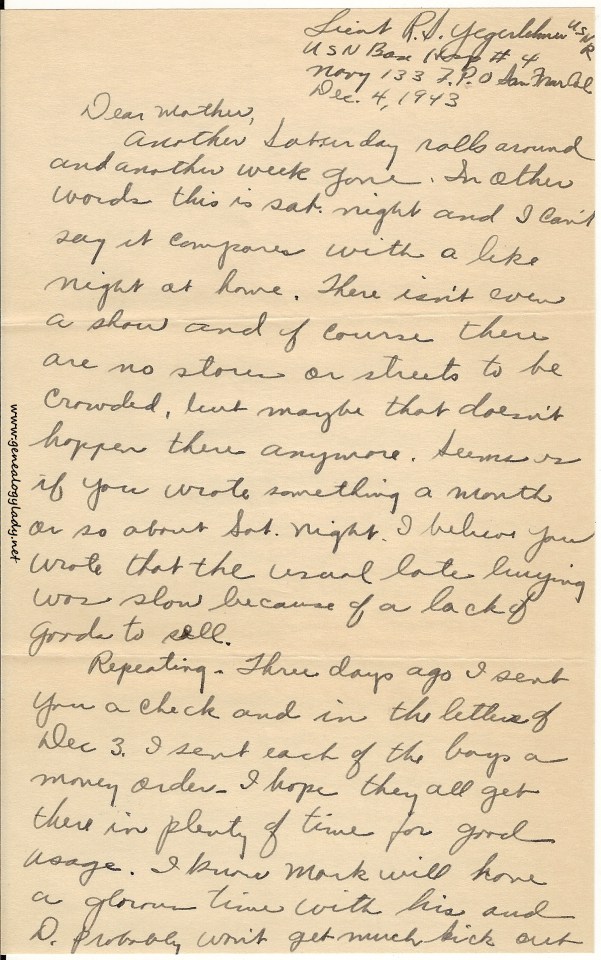 Lieut R.S. Yegerlehner USNR
USN Base Hosp # 4
Navy 133 F.P.O San Fran Cal
Dec. 4, 1943
Dear Mother,
Another Saturday rolls around
and another week gone. In other
words this is sat. night and I can't
say it compares with a like
night at home. There isn't even
a show and of course there
are no stores or streets to be
crowded, but maybe that doesn't
happen there anymore. Seems as
if you wrote something a month
or so about Sat. night. I believe you
wrote that the usual late buying
was slow because of a lack of
goods to sell.
Repeating - Three days ago I sent
you a check and in the letters of
Dec 3. I sent each of the boys a
money order - I hope they all get
there in plenty of time for good
usage. I know Mark will have
a glorious time with his and
D. probably won't get much kick out
www.genealogylady.net